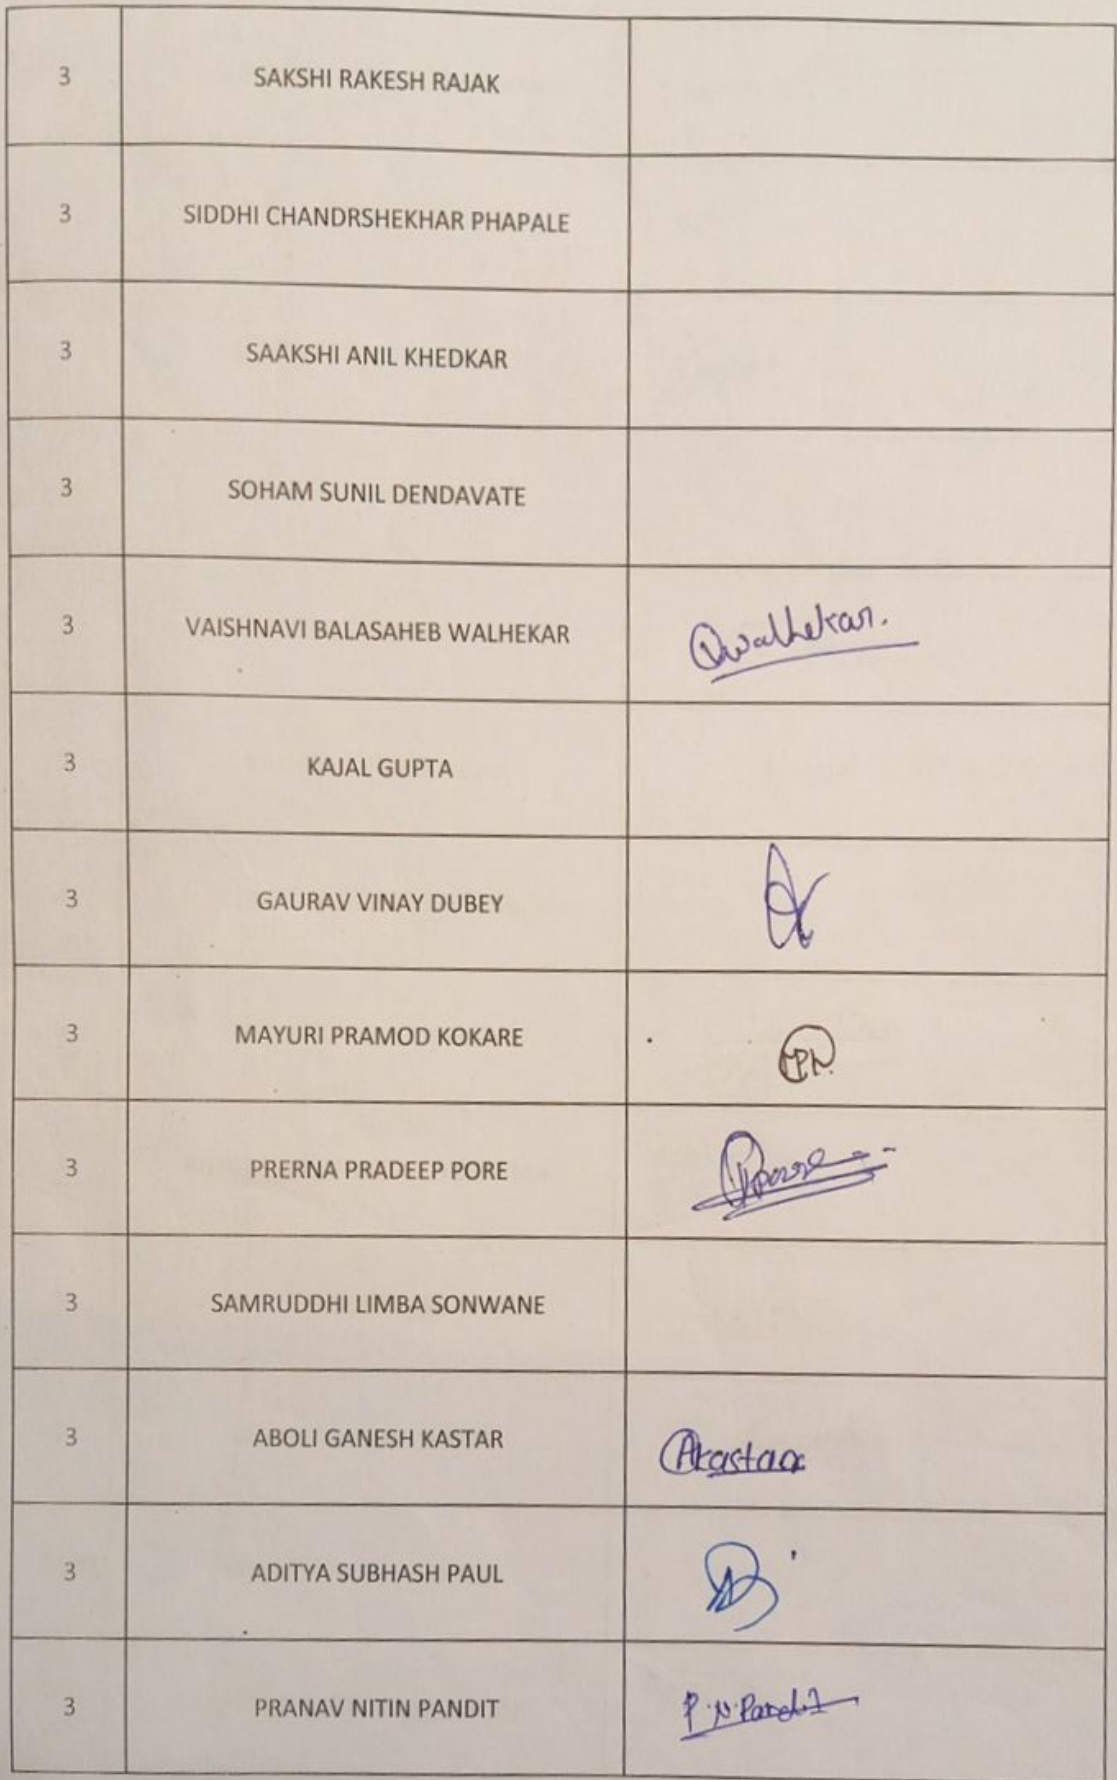 3 SAKSHI RAKESH RAJAK
3 SIDDHI CHANDRSHEKHAR PHAPALE
3 SAAKSHI ANIL KHEDKAR
3 SOHAM SUNIL DENDAVATE
3 VAISHNAVI BALASAHEB WALHEKAR Walhekar.
3 KAJAL GUPTA
3 GAURAV VINAY DUBEY
3 MAYURI PRAMOD KOKARE
3 PRERNA PRADEEP PORE Pore
3 SAMRUDDHI LIMBA SONWANE
3 ABOLI GANESH KASTAR AKastar
3 ADITYA SUBHASH PAUL
3 PRANAV NITIN PANDIT P.N.Pandit